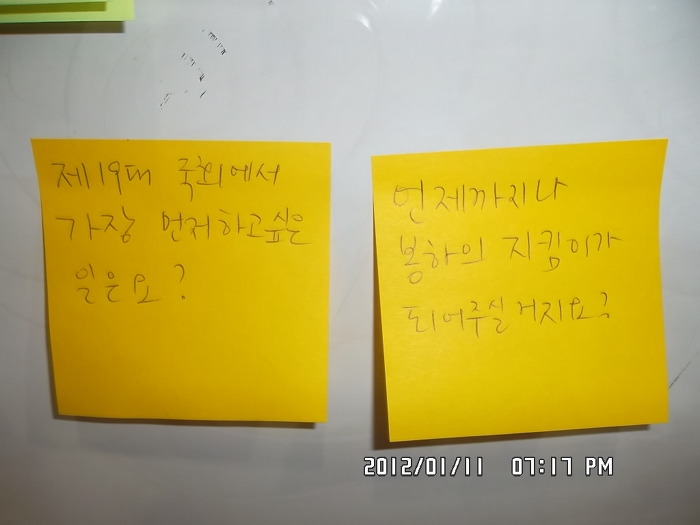 제19대 국회에서
가장 먼저하고싶은
일은요?
언제까지나
봉하의 지킴이가
되어주실거지요?
2012/01/11 07:17 PM